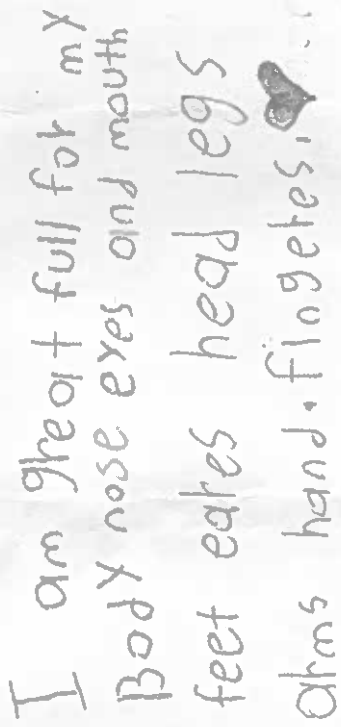 I am great full for my
Body nose eyes and mouth
feet eares head legs
arms hand. fingeres.